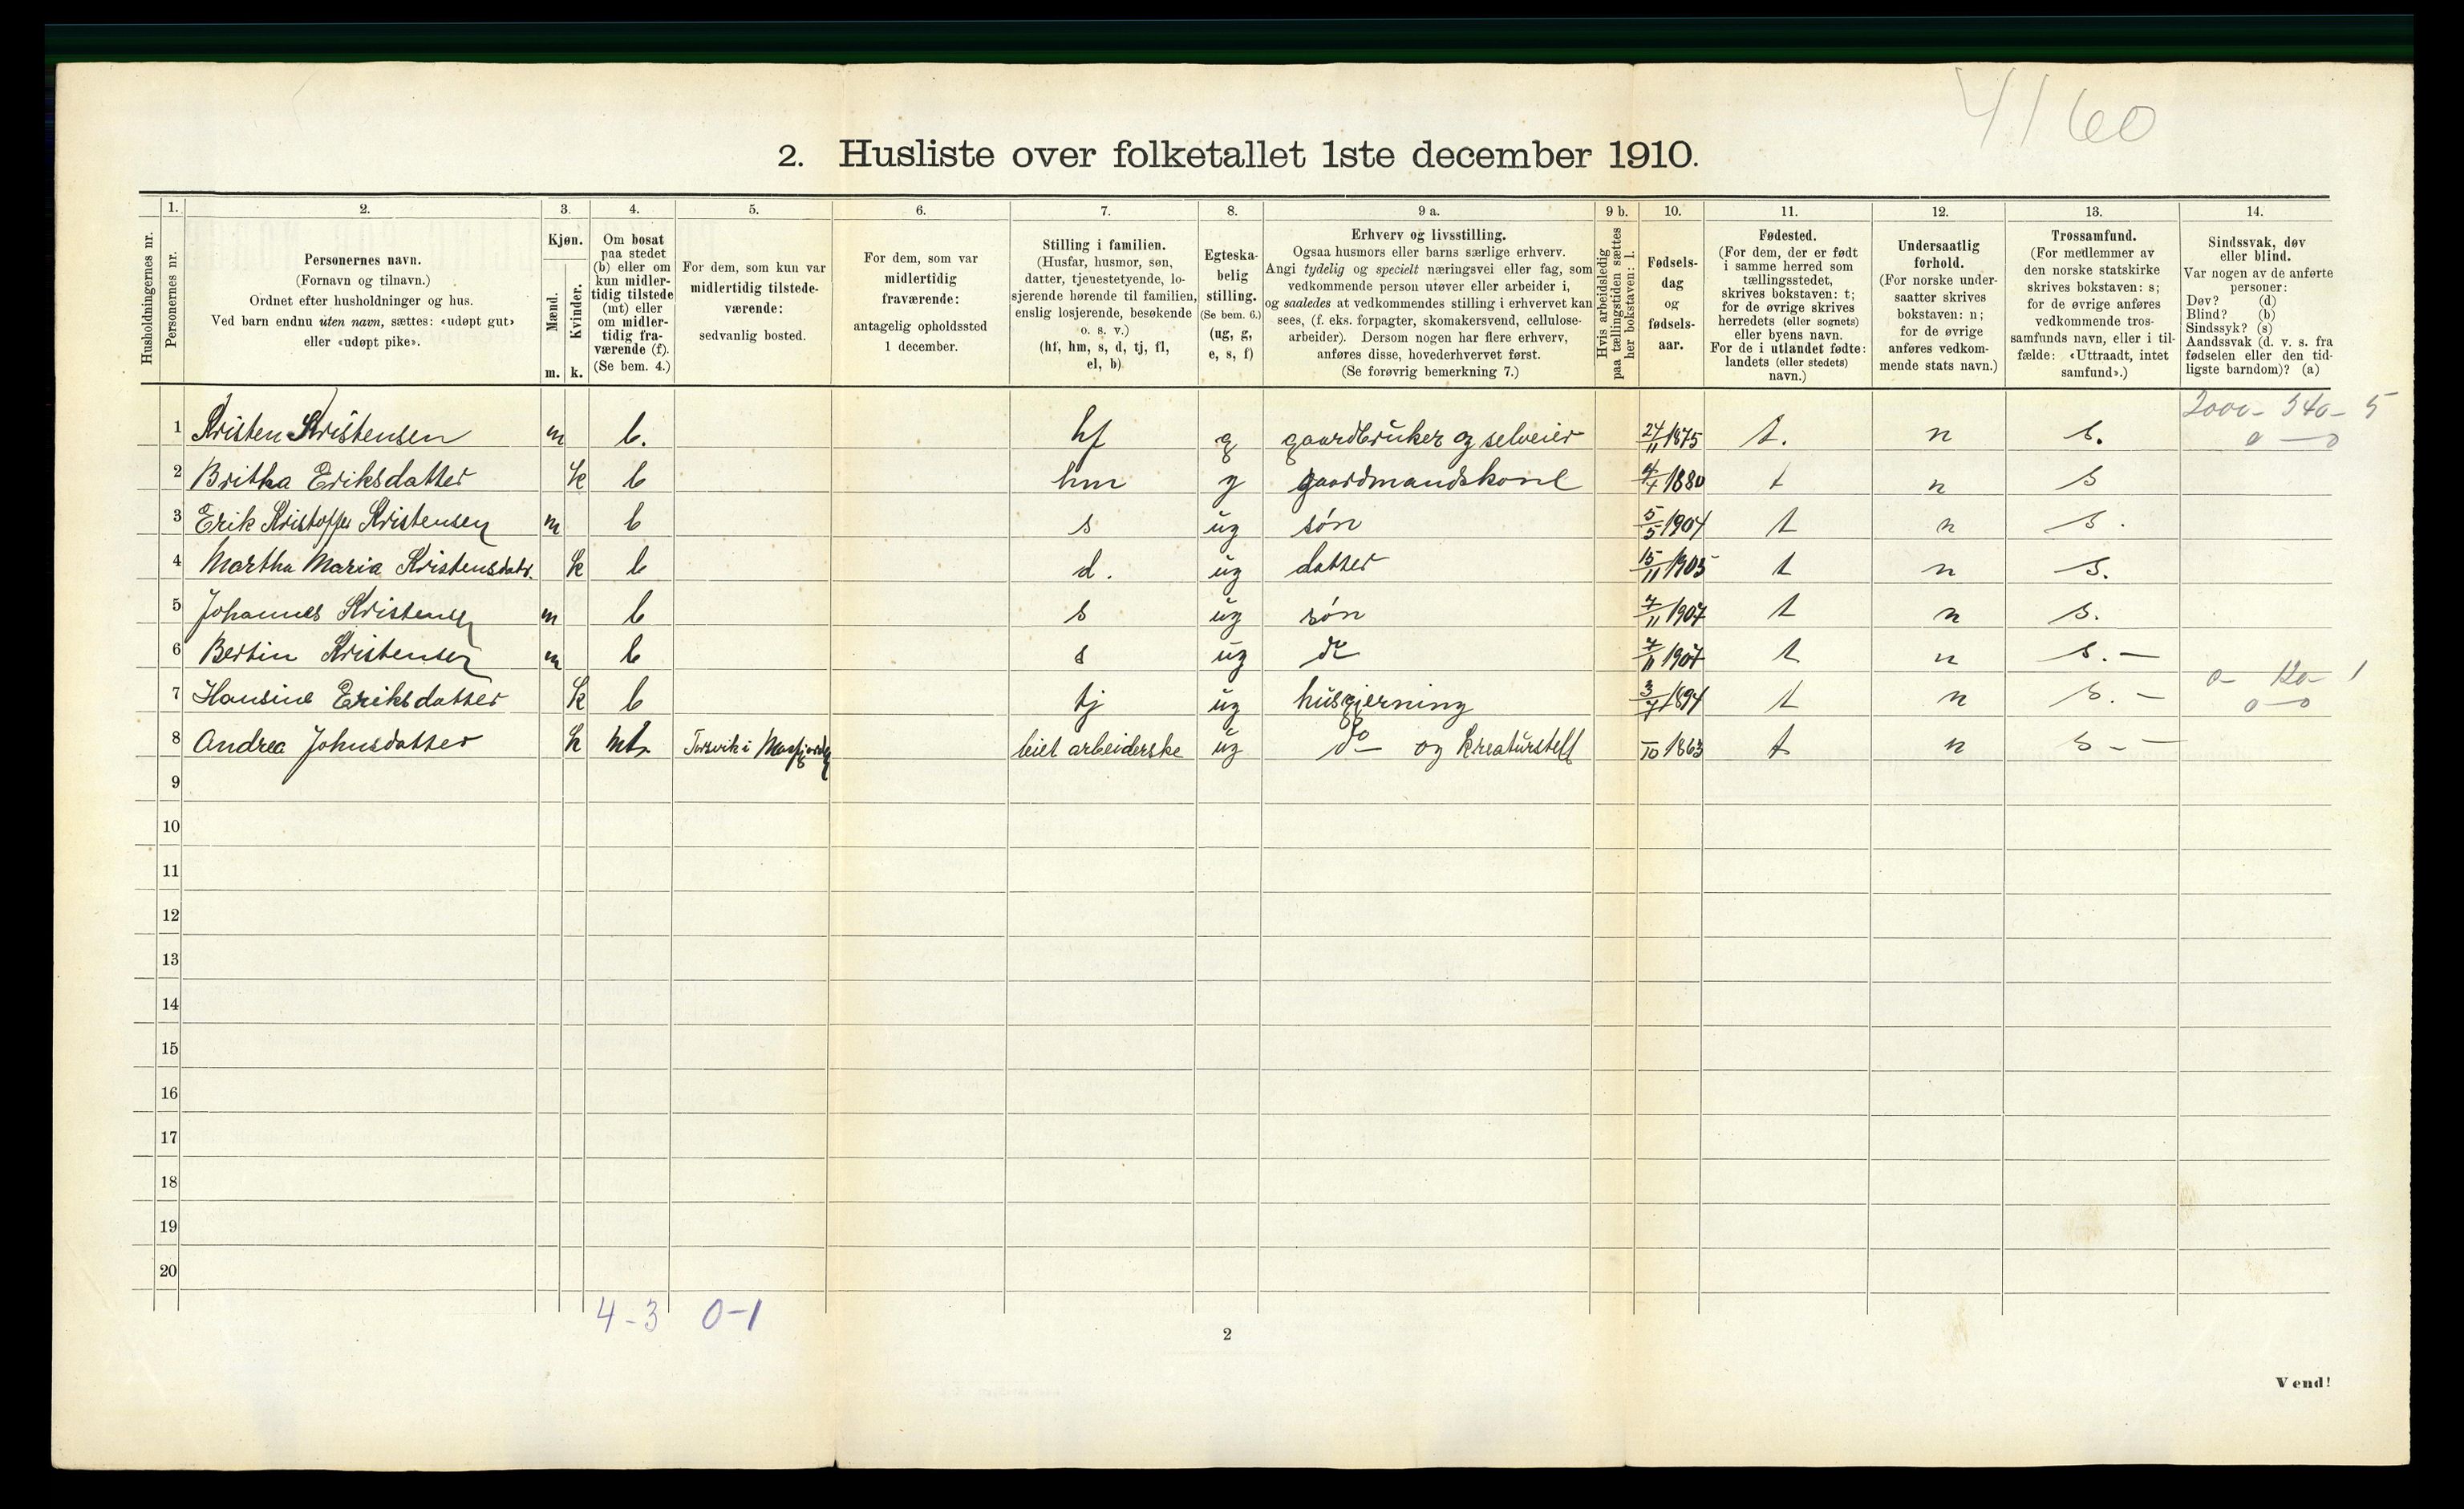 4160
2. Husliste over folketallet 1ste december 1910.
Husholdningernes nr.
1. Personernes nr.
2. Personernes navn. (Fornavn og tilnavn.) Ordnet efter husholdninger og hus. Ved barn endnu uten navn, sættes: «udøpt gut» eller «udøpt pike».
3. Kjøn. Mænd. m. Kvinder. k.
4. Om bosat paa stedet (b) eller om kun midlertidig tilstede (mt) eller om midlertidig fraværende (f). (Se bem. 4.)
5. For dem, som kun var midlertidig tilstedeværende: sedvanlig bosted.
6. For dem, som var midlertidig fraværende: antagelig opholdssted 1 december.
7. Stilling i familien. (Husfar, husmor, søn, datter, tjenestetyende, losjerende hørende til familien, enslig losjerende, besøkende o. s. v.) (hf, hm, s, d, tj, fl, el, b)
8. Egteskabelig stilling. (Se bem. 6.) (ug, g, e, s, f)
9 a. Erhverv og livsstilling. Ogsaa husmors eller barns særlige erhverv. Angi tydelig og specielt næringsvei eller fag, som vedkommende person utøver eller arbeider i, og saaledes at vedkommendes stilling i erhvervet kan sees, (f. eks. forpagter, skomakersvend, cellulosearbeider). Dersom nogen har flere erhverv, anføres disse, hovederhvervet først. (Se forøvrig bemerkning 7.)
9 b. Hvis arbeidsledig paa tællingstiden sættes her bokstaven: l.
10. Fødselsdag og fødselsaar.
11. Fødested. (For dem, der er født i samme herred som tællingsstedet, skrives bokstaven: t; for de øvrige skrives herredets (eller sognets) eller byens navn. For de i utlandet fødte: landets (eller stedets) navn.)
12. Undersaatlig forhold. (For norske undersaatter skrives bokstaven: n; for de øvrige anføres vedkommende stats navn.)
13. Trossamfund. (For medlemmer av den norske statskirke skrives bokstaven: s; for de øvrige anføres vedkommende trossamfunds navn, eller i tilfælde: «Uttraadt, intet samfund».)
14. Sindssvak, døv eller blind. Var nogen av de anførte personer: Døv? (d) Blind? (b) Sindssyk? (s) Aandssvak (d. v. s. fra fødselen eller den tidligste barndom)? (a)
2000 - 340 - 5
1 Kristen Kristensen m b. hf g gaardbruker og selveier 24/11 1875 t. n s. 0 — 0
2 Britha Eriksdatter k b hm g gaardmandskone 4/4 1880 t n s
3 Erik Kristoffer Kristensen m b s ug søn 5/5 1904 t n s.
4 Martha Maria Kristensdatr. k b d. ug datter 15/11 1905 t n s.
5 Johannes Kristensen m b s ug søn 7/11 1907 t n s.
6 Bertin Kristensen m b s ug do 7/11 1907 t n s. —
0 - 120 - 1
7 Hansine Eriksdatter k b tj ug husgjerning 3/7 1894 t n s. — 0 — 0
8 Andrea Johnsdatter k mt. Torsvik i Masfjorden leiet arbeiderske ug do og kreaturstell /10 1863 t n s - —
9
10
11
12
13
14
15
16
17
18
19
20
4 - 3 0 - 1
2
Vend!